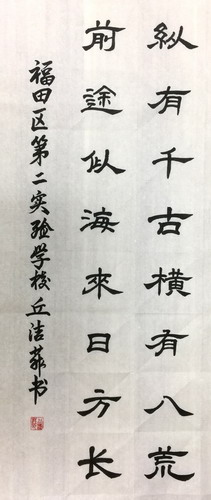 纵有千古横有八荒
前途似海來日方长
福田区第二实验学校丘洁苑书